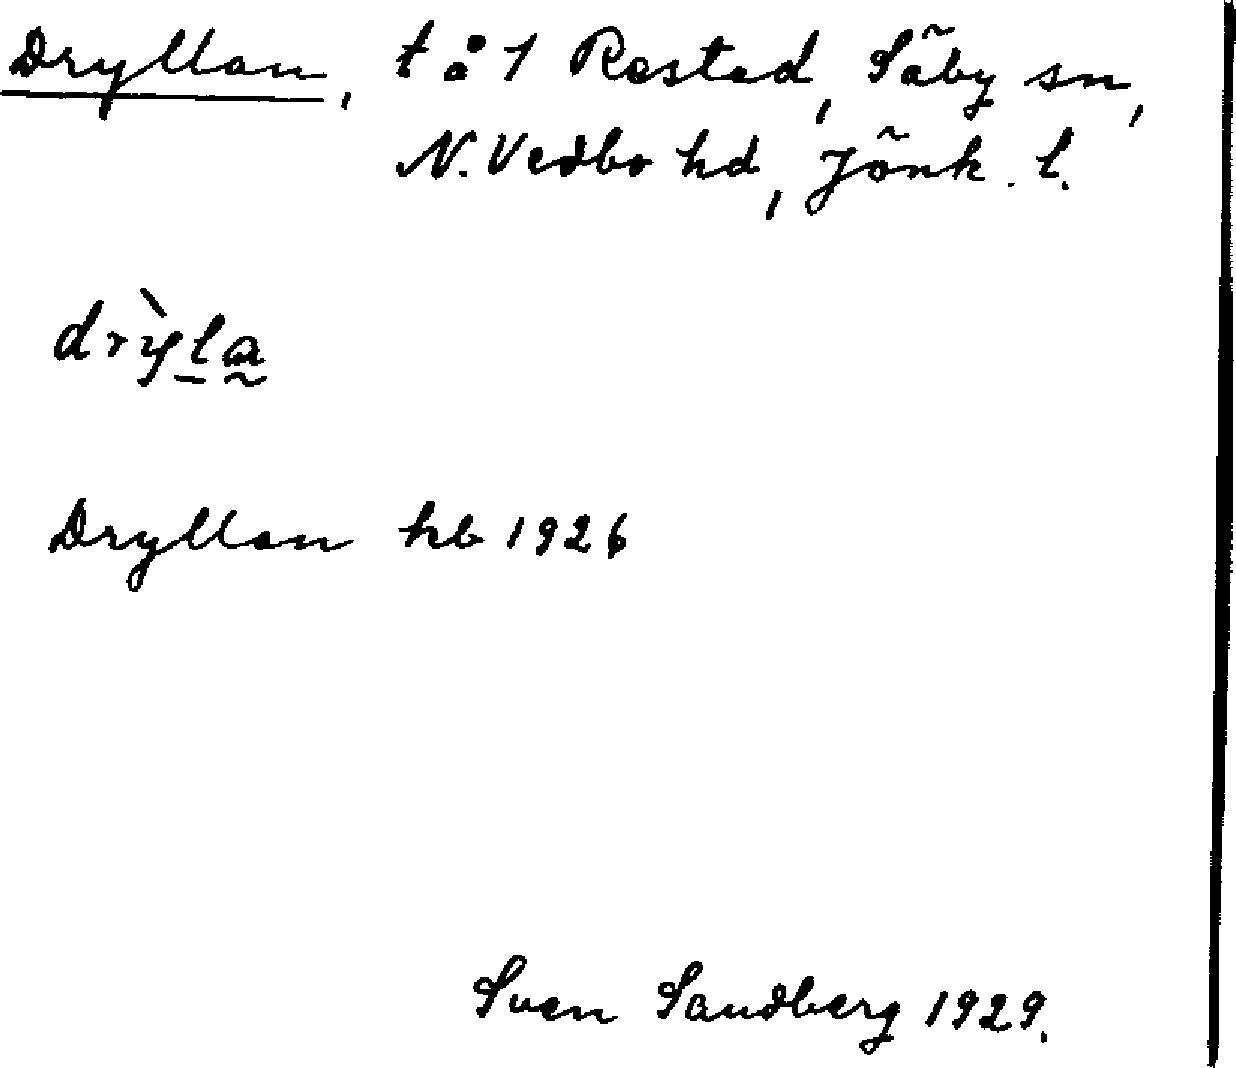 Dryllan, t å 1 Restad, Säby sn,
N. Vedbo hd, Jönk. l.
drỳla
Dryllan hb 1926
Sven Sandberg 1929.